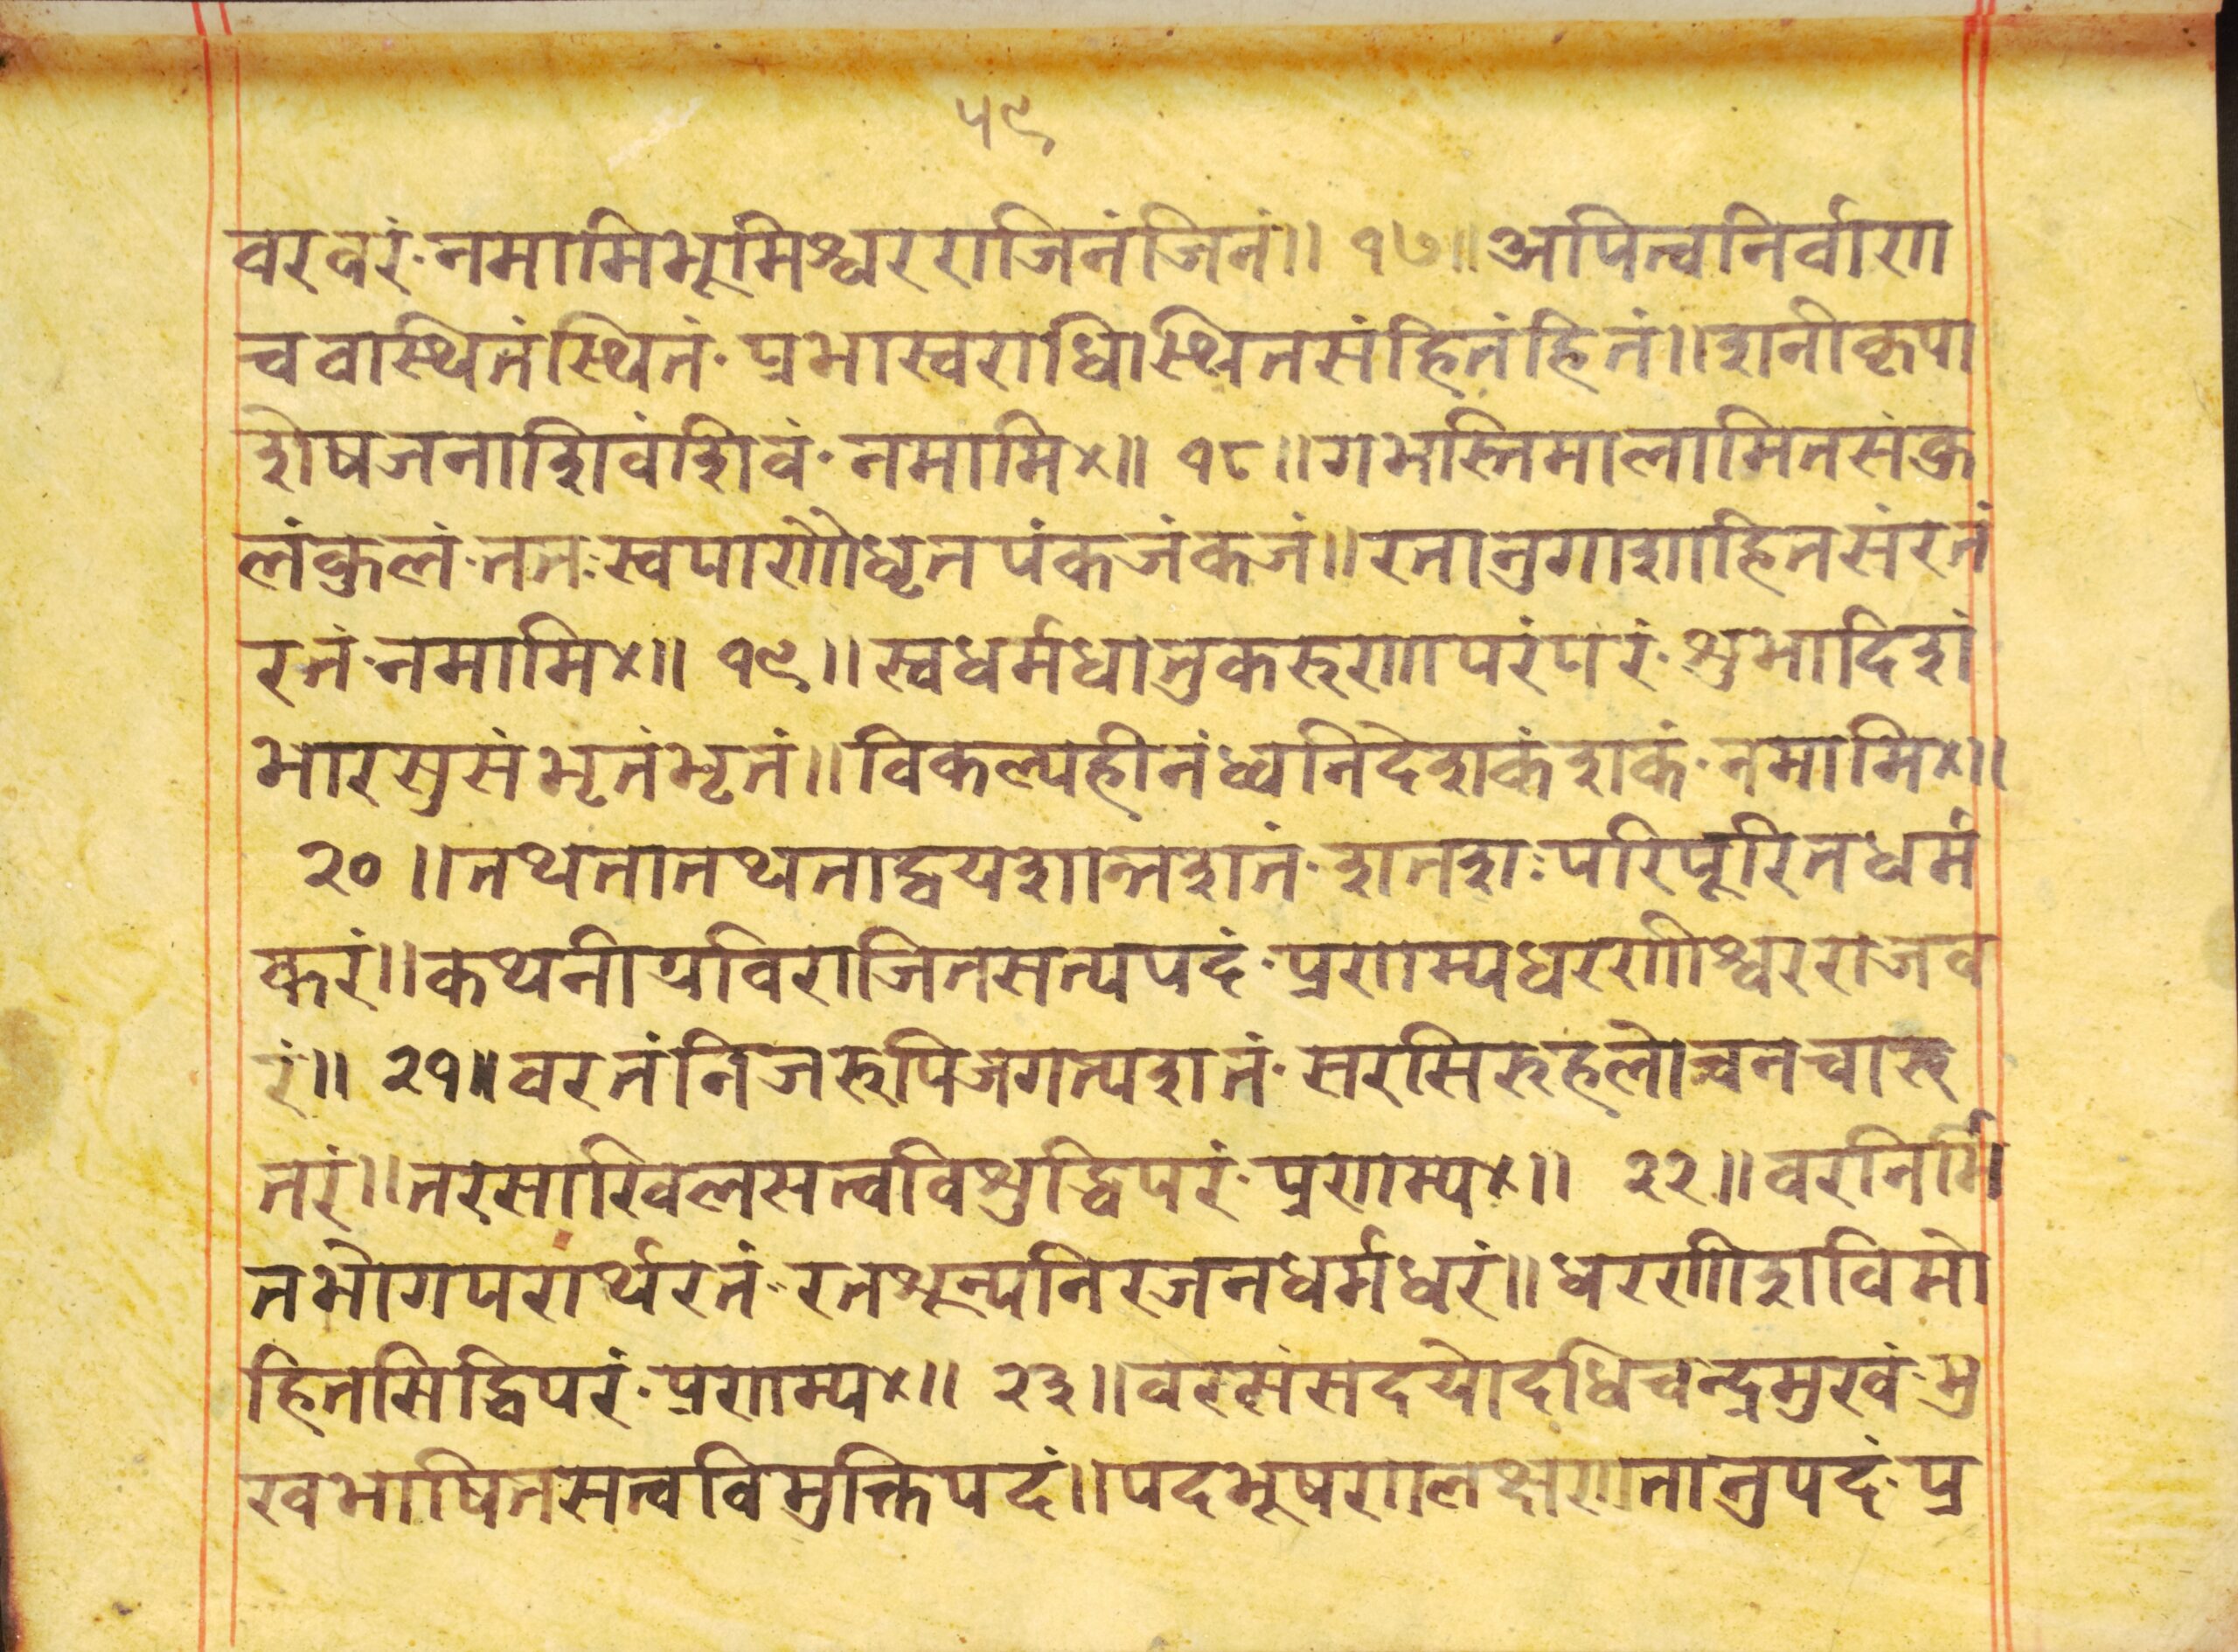 ५९
वरवरं·नमामिभूमिश्वरराजितंजितं॥ १७॥अपित्वनिर्वाण
चवास्थितंस्थितं·प्रभास्वराधिास्थितसंहितंहितं॥शतीकृपा
शेषजनाशिवंशिवं·नमामि×॥ १८॥गभस्तिमालामितसंकु
लंकुलं·तत·स्वपाणौधृतपंकजंकजं॥रतानुगाशाहितसंरतं
रतं·नमामि×॥ १९॥स्वधर्मधातुकरुणापरंपरं·शुभादिशं
भारसुसंभृतंभृतं॥विकल्पहीनंध्वनिदेशकंशकं·नमामि×॥
२०॥तथतातथताद्वयशान्तशतं·शतशःपरिपूरितधर्म
करं॥कथनीयविराजितसत्यपदं·प्रणाम्यधरणीश्वरराजव
रं॥ २१॥वरतंनिजरुपिजगत्पशतं·सरसिरुहलोच्चनचारु
तरं॥तरसाखिलसत्वविशुद्धिपरं·प्रणाम्य×॥ २२॥वरनिर्मि
तभोगपरार्थरतं·रतशून्यनिरजनधर्मधरं॥धरणीशविमो
हितसिद्धिपरं·प्रणाम्य×॥ २३॥वरसंसदयोदधिचन्द्रमुखं·मु
खभाषितसत्वविमुक्तिपदं॥पदभूषणलक्षणतानुपदं·प्र